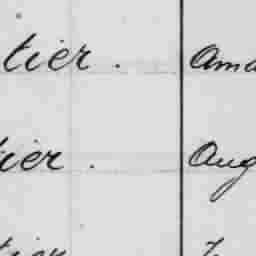 tier. Ama
ier. Aug